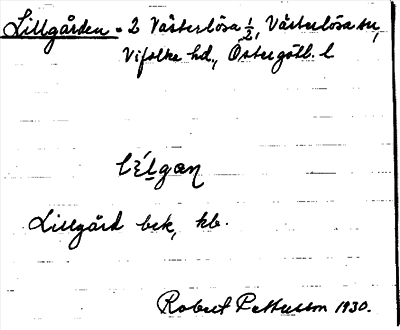 Lillgården = 2 Västerlösa 1/2, Västerlösa sn,
Vifolka hd., Östergötl. l
Lillgård bek, kb.
Robert Pettersson 1930.